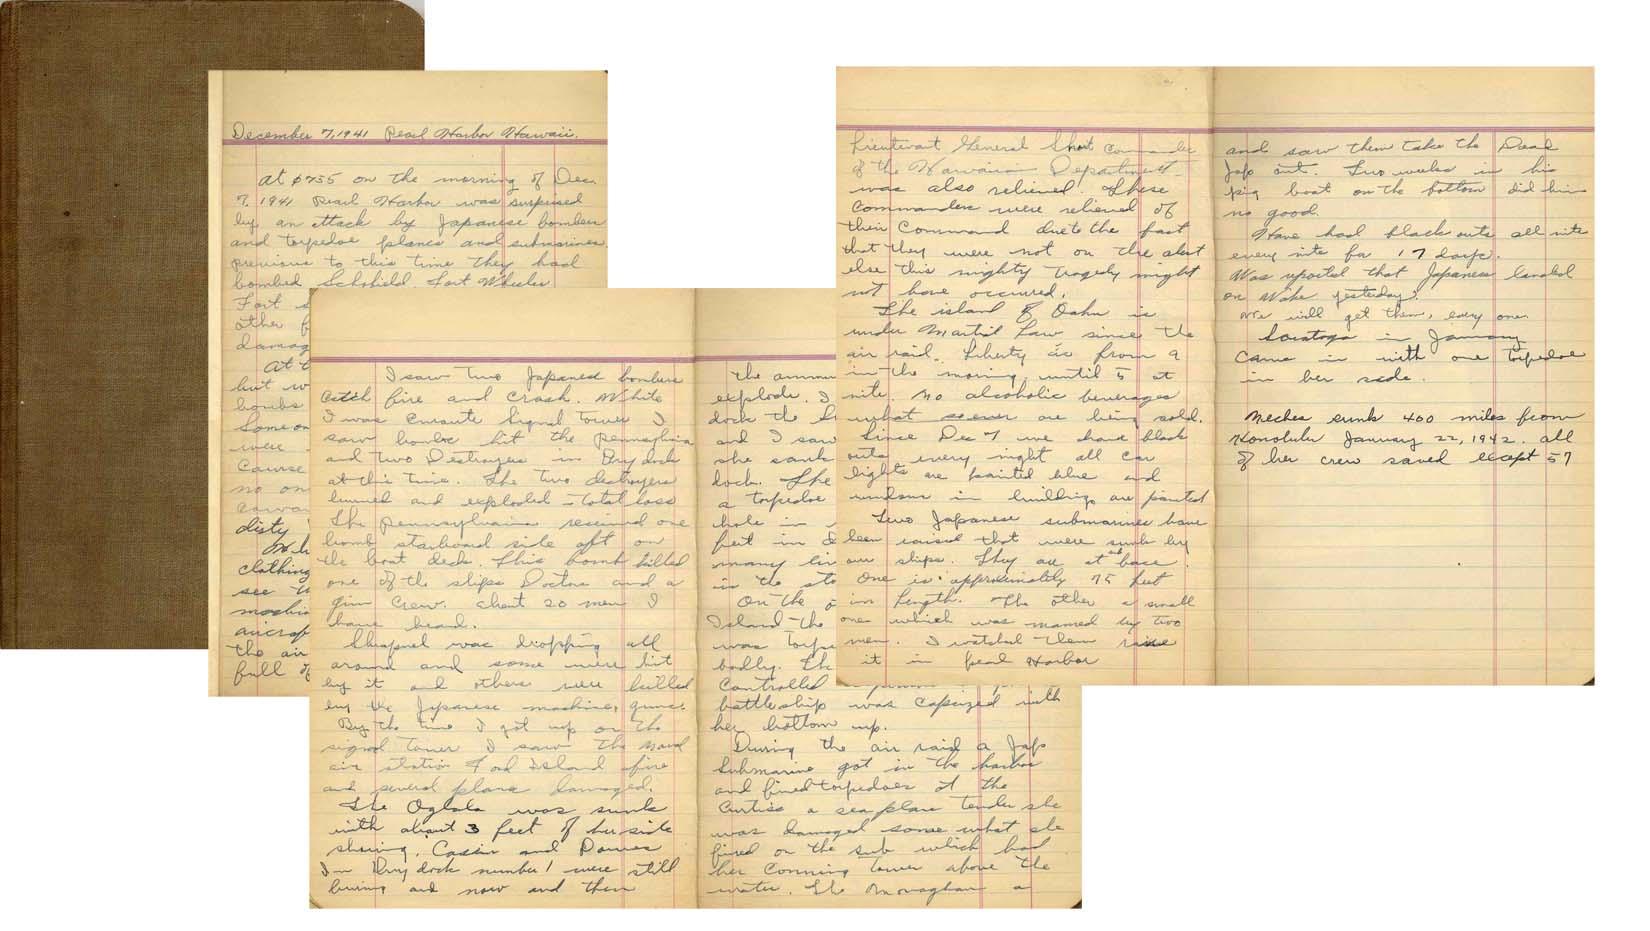 December 7, 1941 Pearl Harbor Hawaii.
At 0755 on the morning of Dec.
7, 1941 Pearl Harbor was surprised
by an attack by Japanese bombers
and torpedoe planes and submarines.
previous to this time they had
bombed Schofield. Fort Wheeler
Fort
other
damag
At t
but w
bombs
Some on
were
Cause
no on
disty
clothing
see
machin
aircraf
the air
full of
I saw two Japanese bombers
catch fire and crash. While
I was enroute Signal tower I
saw bombs hit the Pennsylvania
and two Destroyers in Dry dock
at this time. The two destroyers
burned and exploded - total loss
The Pennsylvania received one
bomb starboard side aft on
the boat deck. This bomb killed
one of the ships Doctors and a
gun crew. about 20 men I
have heard.
Shrapnel was dropping all
around and some were hit
by it and others were killed
by the Japanese machine guns.
By the time I got up on the
signal tower I saw the Naval
air station Ford Island afire
and several plans damaged.
The Oglala was sunk
with about 3 feet of her side
showing. Cassin and Downes
In Dry dock number 1 were still
burning and now and then
the ammu
explode. I
dock the
and I saw
she sank
dock. The
a torpedoe
hole in
feet in
many
in the sto
On the o
Island the
was torpe
badly. The
Controlled
battleship was capsized with
her bottom up.
During the air raid a Jap
Submarine got in the harbor
and fired torpedoes at the
Curtiss a sea plane tender she
was damaged some what she
fired on the sub which had
her Conning tower above the
water. The Monaghan a
Lieutenant General Short Commander
of the Hawaiian Department
was also relieved. These
Commanders were relieved of
their Command due to the fact
that they were not on the alert
else this mighty tragedy might
not have occurred.
The island of Oahu is
under Martial Law since the
air raid. Liberty is from 9
in the morning until 5 at
nite. No alcoholic beverages
what so ever are being sold.
Since Dec 7 we have black
outs every night all car
lights are painted blue and
windows in buildings are painted
Two Japanese submarines have
been raised that were sunk by
our ships. They are at sub base.
One is approximately 75 feet
in length. The other a small
one which was manned by two
men. I watched them raise
it in Pearl Harbor
and saw them take the Dead
Jap out. Two weeks in his
pig boat on the bottom did him
no good.
Have had blackouts all nite
every nite for 17 days.
Was reported that Japanese landed
on Wake yesterday.
We will get them, every one.
Saratoga in January
Came in with one torpedoe
in her side.
Neches sunk 400 miles from
Honolulu January 22, 1942. all
of her crew saved except 57